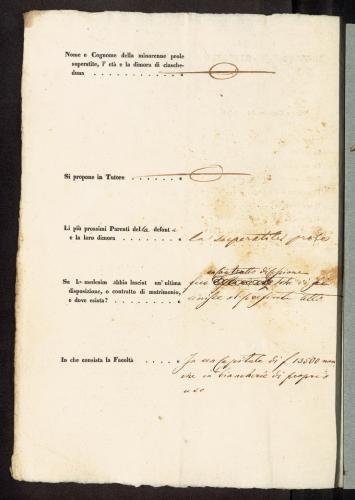 Nome e Cognome della minorenne prole
superstite, l' età e la dimora di ciasche-
duna . . . . . . . . . . .
Si propone in Tutore . . . . . . .
Li più prossimi Parenti del la defont a
e la loro dimora . . . . . . . .
la superstite prole
Se La medesim abbia lasciat un' ultima
disposizione, o contratto di matrimonio,
e dove esista? . . . . . . . . .
In che consista la Facoltà . . . . .
In un capitale di f 13500 non
che in biancherie di proprio
uso